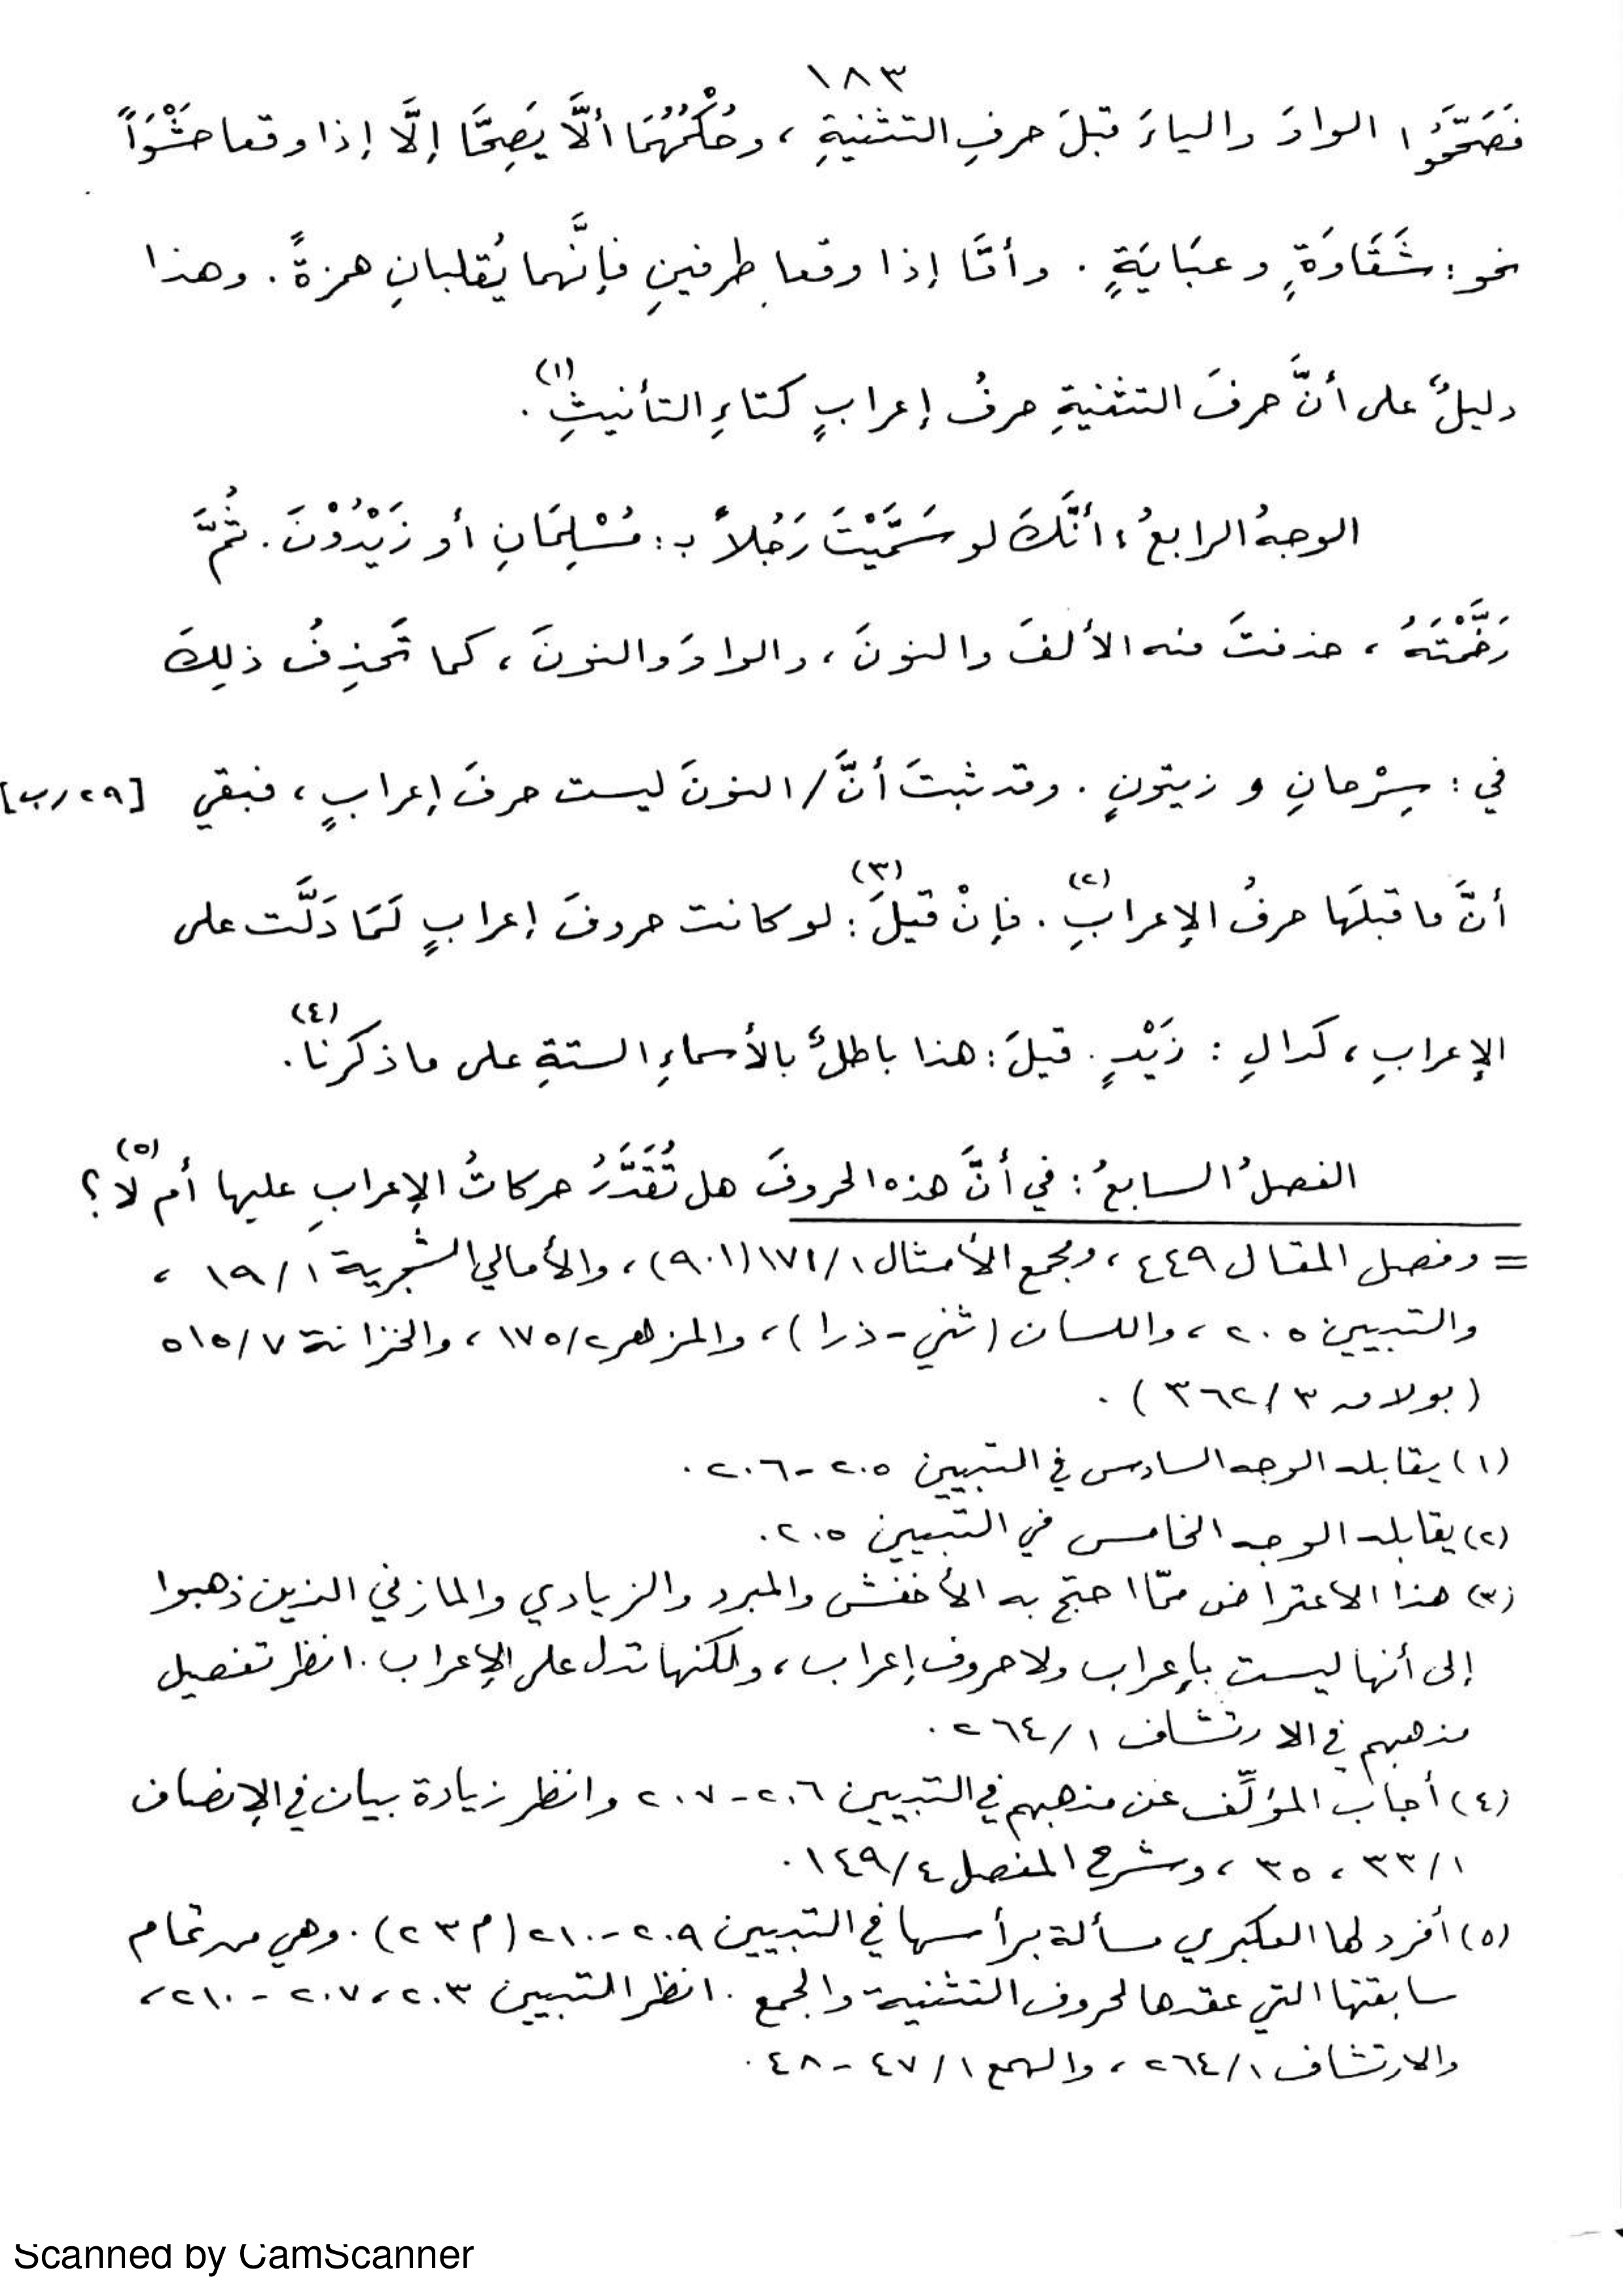 ١٨٣
فَصَحَّحُوا الواوَ والياءَ قبلَ حرفِ التثنيةِ ، وحُكْمُهُمَا ألَّا يَصِحَّا إلَّا إذا وقعا حَشْوَاً
نحو : شَقَاوَةٍ وعبَايَةٍ . وأمَّا إذا وقعا طرفينِ فإنَّهما يُقلبانِ همزةً . وهذا
دليلٌ على أنَّ حرفَ التثنيةِ حرفُ إعرابٍ كتاءِ التأنيثِ (١) .
الوجهُ الرابعُ : أنَّكَ لو سَمَّيْتَ رَجُلاً بـ : مُسْلِمَانِ أو زَيْدُوْنَ . ثُمَّ
رَخَّمْتَهُ ، حذفتَ منه الألفَ والنونَ ، والواوَ والنونَ ، كما تَحذِفُ ذلِكَ
في : سِرْحانِ و زيتونٍ . وقد ثبتَ أنَّ / النونَ ليست حرفَ إعرابٍ ، فبقي [٢٩/ب]
أنَّ ما قبلَها حرفُ الإعرابِ (٢) . فإنْ قيلَ (٣) : لو كانت حروفَ إعرابٍ لَمَا دَلَّت على
الإعرابِ ، كدالِ : زَيْدٍ . قيلَ : هذا باطلٌ بالأسماءِ الستةِ على ما ذكرنا (٤) .
الفصلُ السابعُ : في أنَّ هذه الحروفَ هل تُقَدَّرُ حركاتُ الإعرابِ عليها أم لا (٥) ؟
= وفصل المقال ٤٤٩ ، ومجمع الأمثال ١/ ١٧١ (٩٠١) ، والأمالي الشجرية ١/ ١٩ ،
والتبيين ٢٠٥ ، واللسان (ثني - ذرا) ، والمزهر ٢/ ١٧٥ ، والخزانة ٧/ ٥١٥
(بولاق ٣/ ٣٦٢) .
(١) يقابله الوجه السادس في التبيين ٢٠٥ - ٢٠٦ .
(٢) يقابله الوجه الخامس في التبيين ٢٠٥ .
(٣) هذا الاعتراض ممّا احتج به الأخفش والمبرد والزيادي والمازني الذين ذهبوا
إلى أنها ليست بإعراب ولا حروف إعراب ، ولكنها تدل على الإعراب . انظر تفصيل
مذهبهم في الارتشاف ١/ ٢٦٤ .
(٤) أجاب المؤلِّف عن مذهبهم في التبيين ٢٠٦ - ٢٠٧ وانظر زيادة بيان في الإنصاف
١/ ٣٣ ، ٣٥ ، وشرح المفصل ٤/ ١٤٩ .
(٥) أفرد لها العكبري مسألة برأسها في التبيين ٢٠٩ - ٢١٠ (م ٢٣) . وهي من تمام
سابقتها التي عقدها لحروف التثنية والجمع . انظر التبيين ٢٠٣ ، ٢٠٧ - ٢١٠ ،
والارتشاف ١/ ٢٦٤ ، والهمع ١/ ٤٧ - ٤٨ .
Scanned by CamScanner